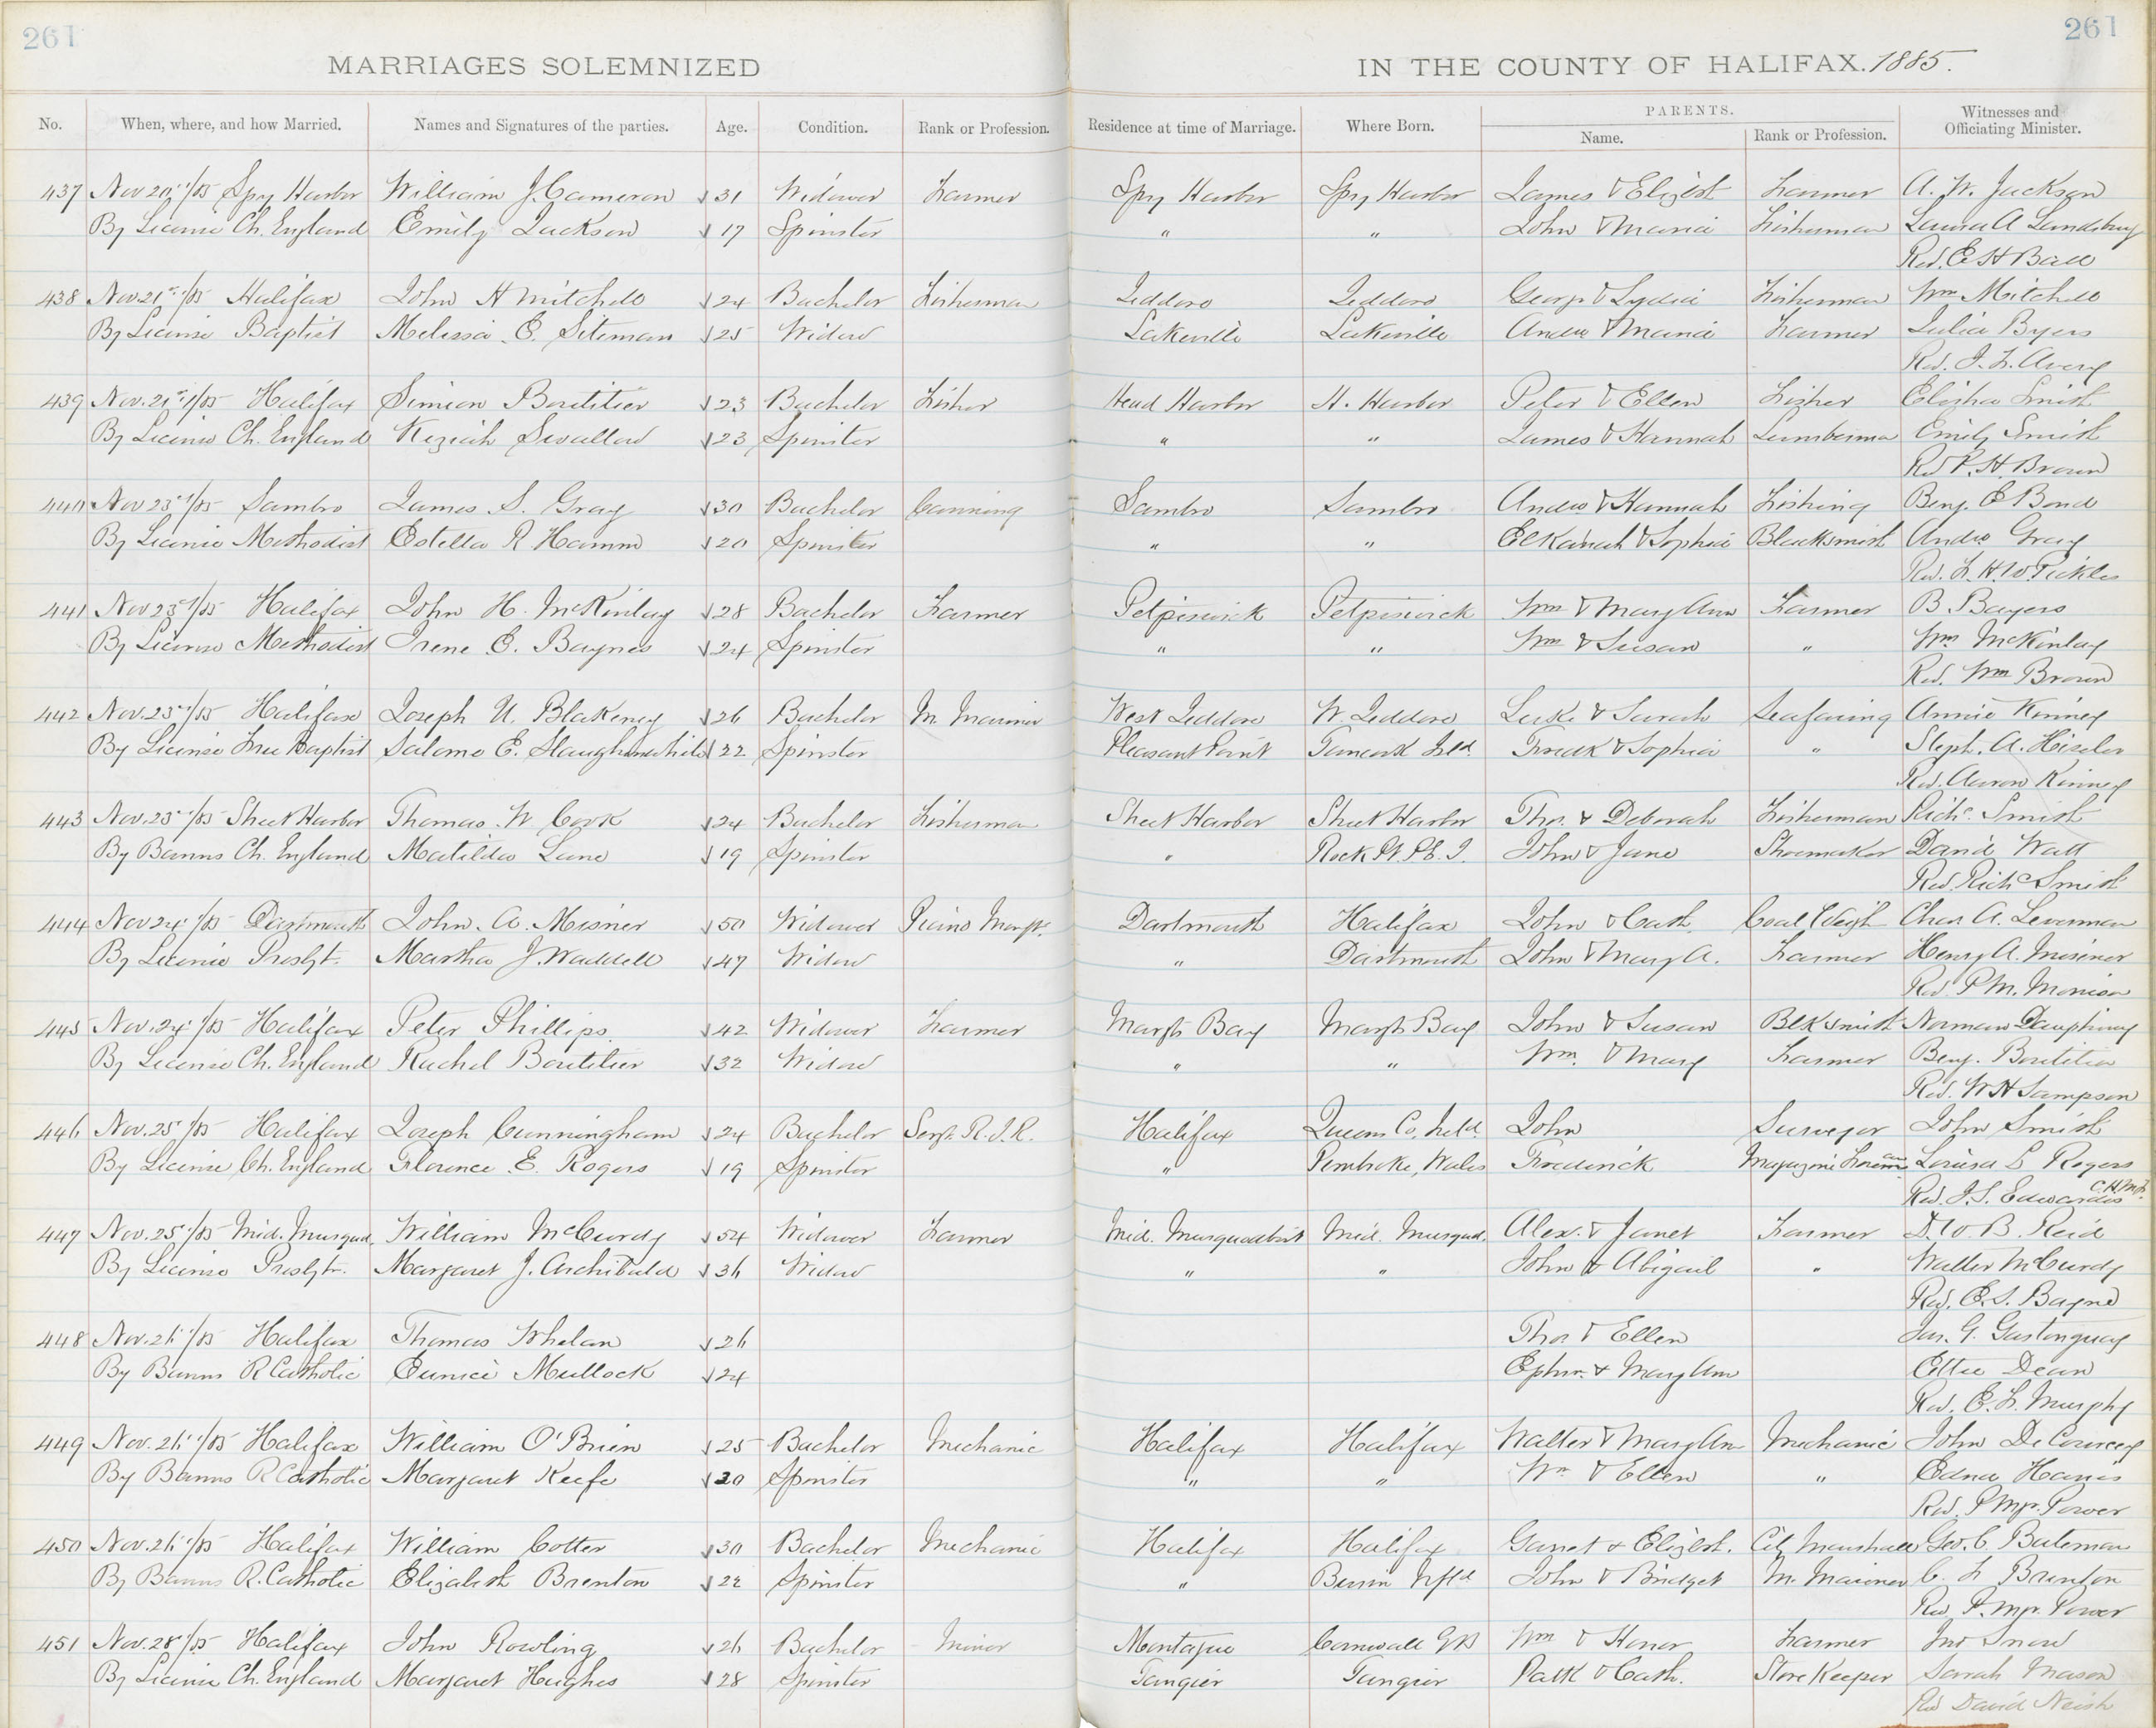 261 261
MARRIAGES SOLEMNIZED IN THE COUNTY OF HALIFAX. 1885.
No. When, where, and how Married. Names and Signatures of the parties. Age. Condition. Rank or Profession. Residence at time of Marriage. Where Born. PARENTS. Name. Rank or Profession. Witnesses and Officiating Minister.
437 Nov 20th /85 Spry Harbor William J. Cameron 31 Widower Farmer Spry Harbor Spry Harbor James & Elizbt Farmer A. W. Jackson
By License Ch. England Emily Jackson 17 Spinster " " John & Maria Fisherman Laura A
Rev. E H Ball
438 Nov. 21st /85 Halifax John H Mitchell 24 Bachelor Fisherman Jeddore Jeddore George & Lydia Fisherman Wm Mitchell
By License Baptist Melissa E. Siteman 25 Widow Lakeville Lakeville Andw & Maria Farmer Julia Byers
Rev. J. F. Avery
439 Nov. 21st /85 Halifax Simion Boutilier 23 Bachelor Fisher Head Harbor H. Harbor Peter & Ellen Fisher Elisha Smith
By License Ch. England Keziah Swallow 23 Spinster " " James & Hannah Lumberman Emily Smith
Rev P. H. Brown
440 Nov 23rd /85 Sambro James S. Gray 30 Bachelor Canning Sambro Sambro Andw & Hannah Fishing Benj. E Bond
By License Methodist Estella R Hamm 20 Spinster " " Elkanah & Sophia Blacksmith Andw Gray
Rev. F. H. W. Pickles
441 Nov 23rd /85 Halifax John H. McKinlay 28 Bachelor Farmer Petpiswick Petpiswick Wm & Mary Ann Farmer B Bayers
By License Methodist Irene E. Baynes 24 Spinster " " Wm & Susan " Wm McKinlay
Rev. Wm Brown
442 Nov. 23rd /85 Halifax Joseph U. Blakeney 26 Bachelor M Mariner West Jeddore W. Jeddore Luke & Sarah Seafaring Annie Kinney
By License Free Baptist Salome E. Slaughenwhite 22 Spinster Pleasant Point Tancook Isld. Fredk & Sophia " Steph. A. Hisler
Rev. Aaron Kinney
443 Nov. 23rd /85 Sheet Harbor Thomas W Cook 24 Bachelor Fisherman Sheet Harbor Sheet Harbor Thos. & Deborah Fisherman Richd. Smith
By Banns Ch. England Matilda Lane 19 Spinster " P. E. I. John & Jane Shoemaker David Watt
Rev. Richd Smith
444 Nov 24th /85 Dartmouth John. A. Misner 50 Widower Piano Manftr. Dartmouth Halifax John & Cath. Coal Weigh Chas A. Leverman
By License Presbyt. Martha J. Waddell 47 Widow " Dartmouth John & Mary A. Farmer Henry A. Misener
Rev. P M. Morrison
445 Nov. 24th /85 Halifax Peter Phillips 42 Widower Farmer Margts Bay Margts Bay John & Susan Blksmith Norman Dauphiney
By License Ch. England Rachel Boutilier 32 Widow " " Wm. & Mary Farmer Benj. Boutilier
Rev. W H Sampson
446 Nov. 25th /85 Halifax Joseph Cunningham 24 Bachelor Sergt. R. I. R. Halifax Queens Co, Ireld. John Surveyor John Smith
By License Ch. England Florence E. Rogers 19 Spinster " Pembroke, Wales Frederick Magazine Foreman Louisa L Rogers
Rev. J. S. Edwardes C. H. M. F.
447 Nov. 25th /85 Mid. Musquod. William McCurdy 54 Widower Farmer Mid. Musquodobit Mid. Musquod. Alex. & Janet Farmer D. W. B. Reid
By License Presbytr. Margaret J. Archibald 36 Widow " " John & Abigail " Walter McCurdy
Rev. E. S. Bayne
448 Nov. 26th /85 Halifax Thomas Whelan 26 Thos & Ellen Jas. G. Gastonguay
By Banns R Catholic Eunice Mullock 24 Ephm. & Mary Ann Ettie Dean
Rev. E. F. Murphy
449 Nov. 26th /85 Halifax William O'Brien 25 Bachelor Mechanic Halifax Halifax Walter & Mary Ann Mechanic John De Courcey
By Banns R Catholic Margaret Keefe 20 Spinster " " Wm & Ellen " Edna Harris
Rev. P Mgr. Power
450 Nov. 26th /85 Halifax William Cotter 30 Bachelor Mechanic Halifax Halifax Garret & Elizbt. City Marshall Geo. C Bateman
By Banns R. Catholic Elizabeth Brenton 22 Spinster " Burin Nfld John & Bridget M. Mariner C. F Brenton
Rev P. Mgr. Power
451 Nov. 28th /85 Halifax John Rowling 26 Bachelor Minor Montague Cornwall GB Wm & Honor Farmer Jno Snow
By License Ch. England Margaret Hughes 28 Spinster Tangier Tangier Patk & Cath. Store Keeper Sarah Mason
Rev David Neish